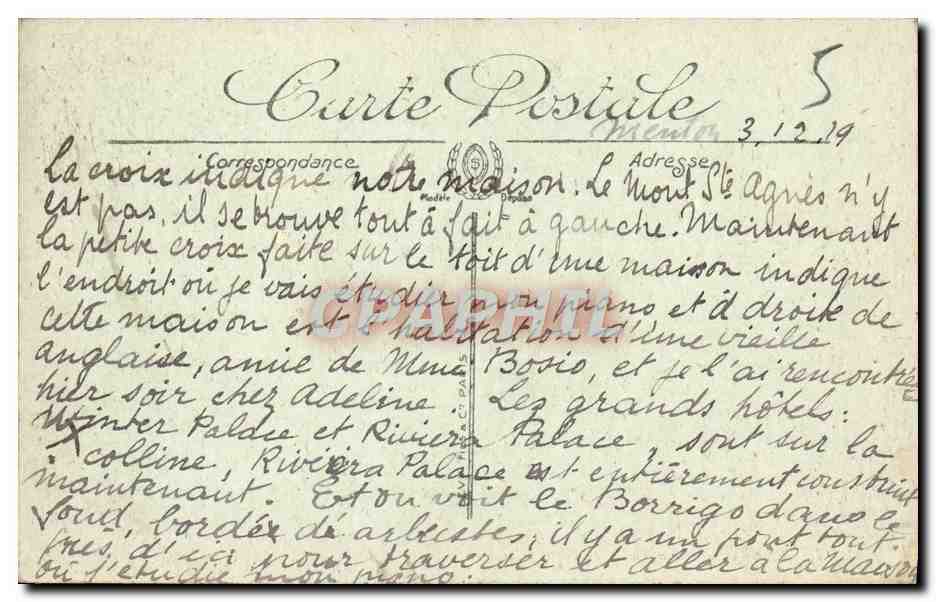 5
Carte Postale
Menton 3.12.19
Correspondance
Adresse
Modèle Déposé
La croix indique notre maison. Le Mont Ste Agnès n'y
est pas, il se trouve tout à fait à gauche. Maintenant
la petite croix faite sur le toit d'une maison indique
l'endroit où je vais étudier mon piano et à droite de
cette maison est l'habitation d'une vieille
anglaise, amie de Mme Bosio, et je l'ai rencontrée
hier soir chez Adeline. Les grands hôtels:
Winter Palace et Riviera Palace, sont sur la
colline, Riviera Palace est entièrement construit
maintenant. Et on voit le Borrigo dans le
fond, bordée de arbustes; il y a un pont tout
près d'ici pour traverser et aller à la maison
où j'étudie mon piano.
CPAPHIL